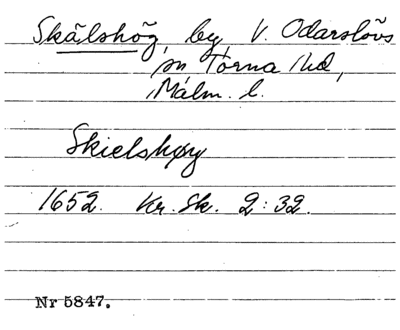 Skälshög, by, V. Odarslövs
sn Torna hd,
Malm. l.
Skielshøy
1652. Kr. Sk. 2:32.
Nr 5847.